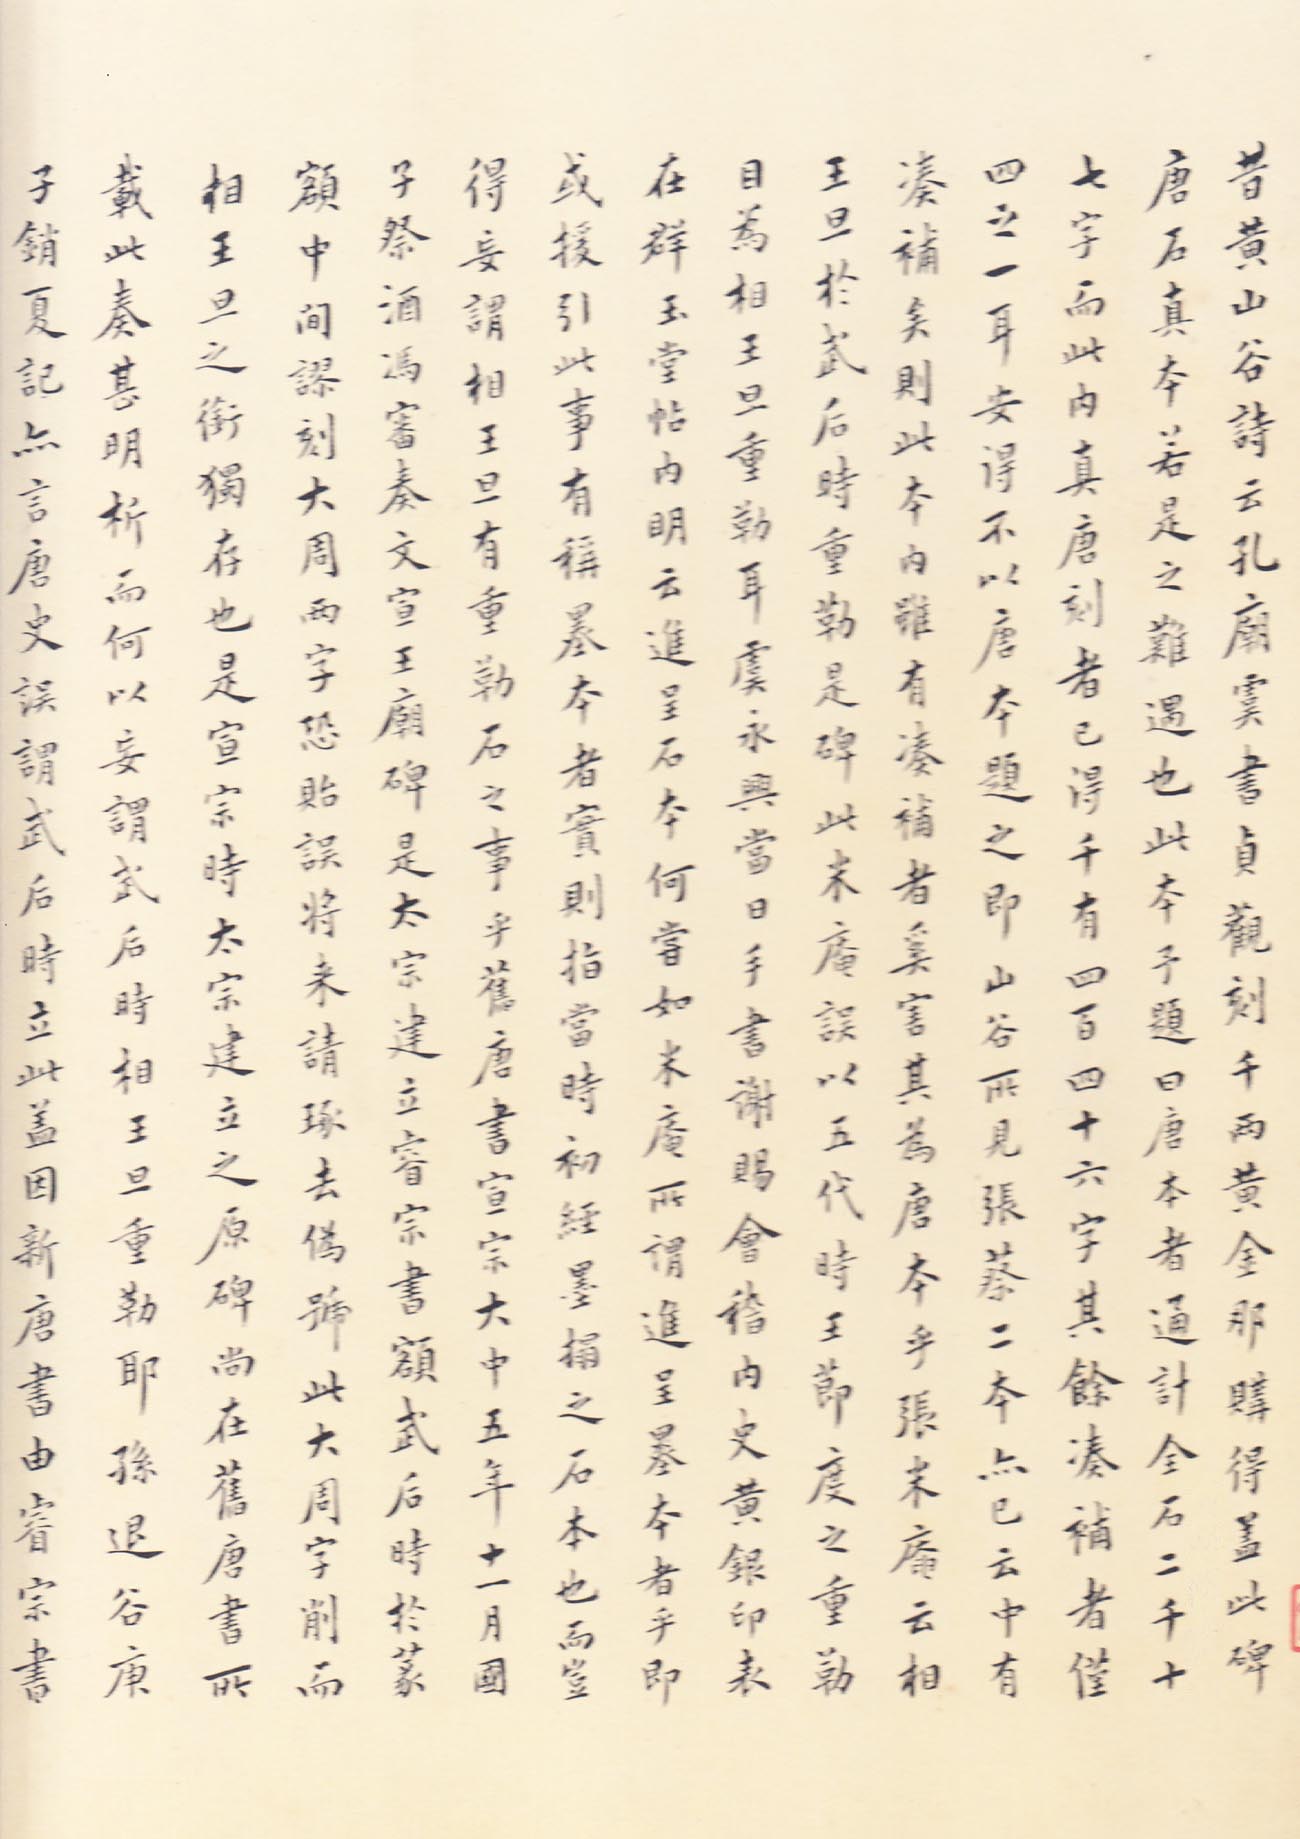 昔黄山谷詩云孔廟虞書貞觀刻千兩黄金那購得盖此碑
唐石真本若是之難遇也此本予題曰唐本者通計全石二千十
七字而此内真唐刻者已得千有四百四十六字其餘湊補者僅
四之一耳安得不以唐本題之即山谷所見張蔡二本亦已云中有
湊補矣則此本内雖有湊補者奚害其為唐本乎張米庵云相
王旦於武后時重勒是碑此米庵誤以五代時王節度之重勒
目為相王旦重勒耳虞永興當日手書謝賜會稽内史黄銀印表
在群玉堂帖内明云進呈石本何嘗如米庵所謂進呈墨本者乎即
或援引此事有稱墨本者實則指當時初經墨搨之石本也而豈
得妄謂相王旦有重勒石之事乎舊唐書宣宗大中五年十一月國
子祭酒馮審奏文宣王廟碑是太宗建立睿宗書額武后時於篆
額中間謬刻大周兩字恐貽誤将来請琢去偽號此大周字削而
相王旦之銜獨存也是宣宗時太宗建立之原碑尚在舊唐書所
載此奏甚明析而何以妄謂武后時相王旦重勒耶孫退谷庚
子銷夏記亦言唐史誤謂武后時立此盖因新唐書由睿宗書